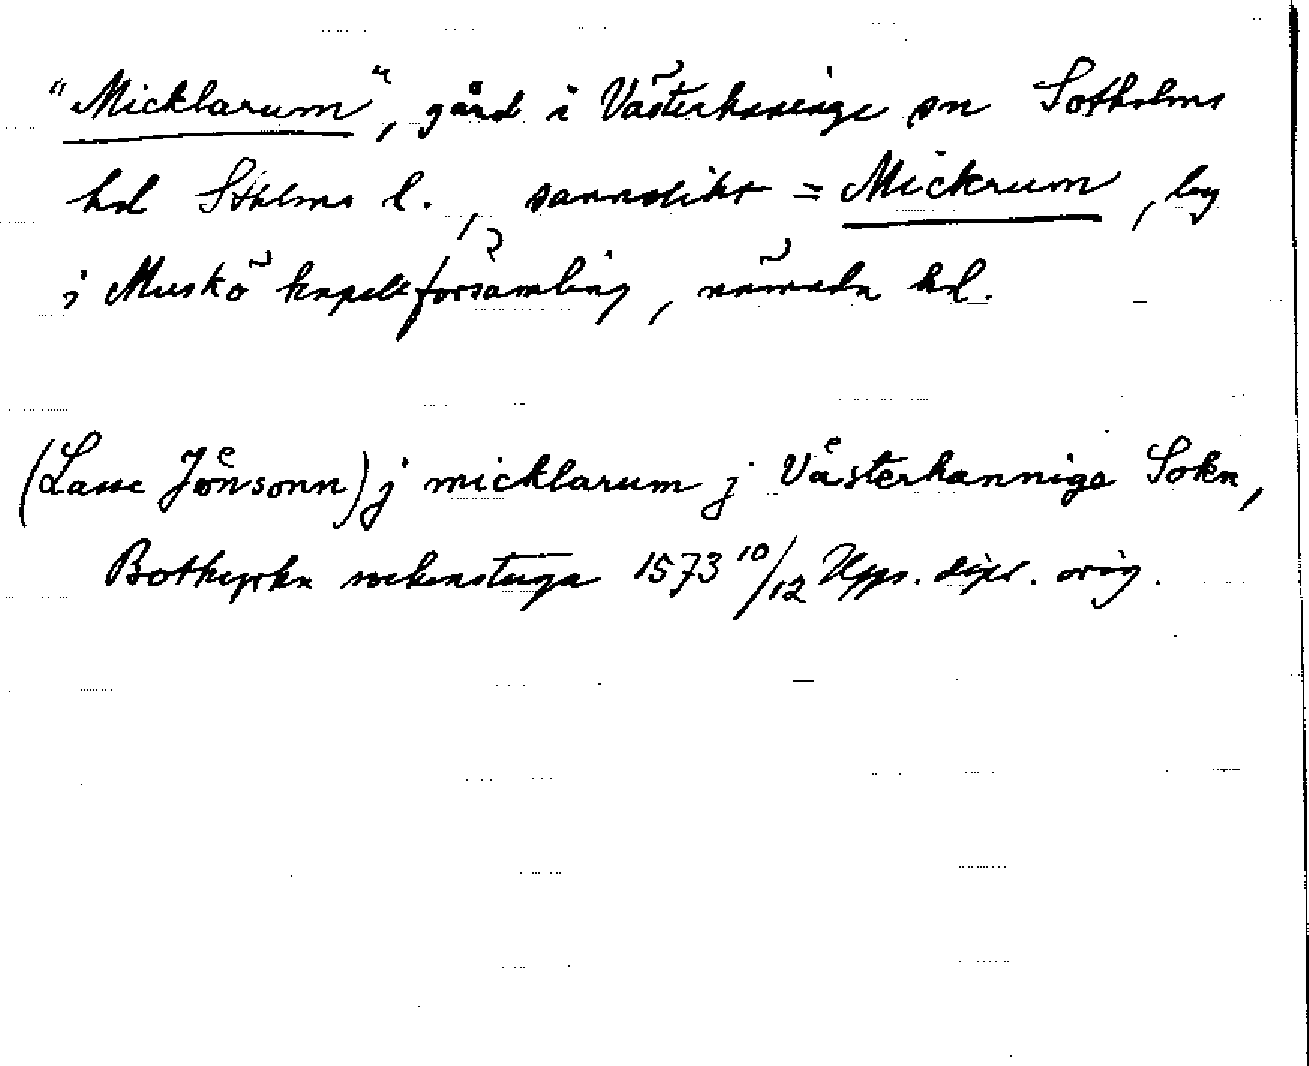 "Micklarum", gård i Västerhaninge sn Sotholms
hd Sthlms l., sannolikt = Mickrum, by
i Muskö kapellförsamling, nämnda hd.
(Lasse Jönsonn) j micklarum j Västerhannige Sokn,
Botkyrka sockenstuga 1573 10/12 Upps. dipl. orig.